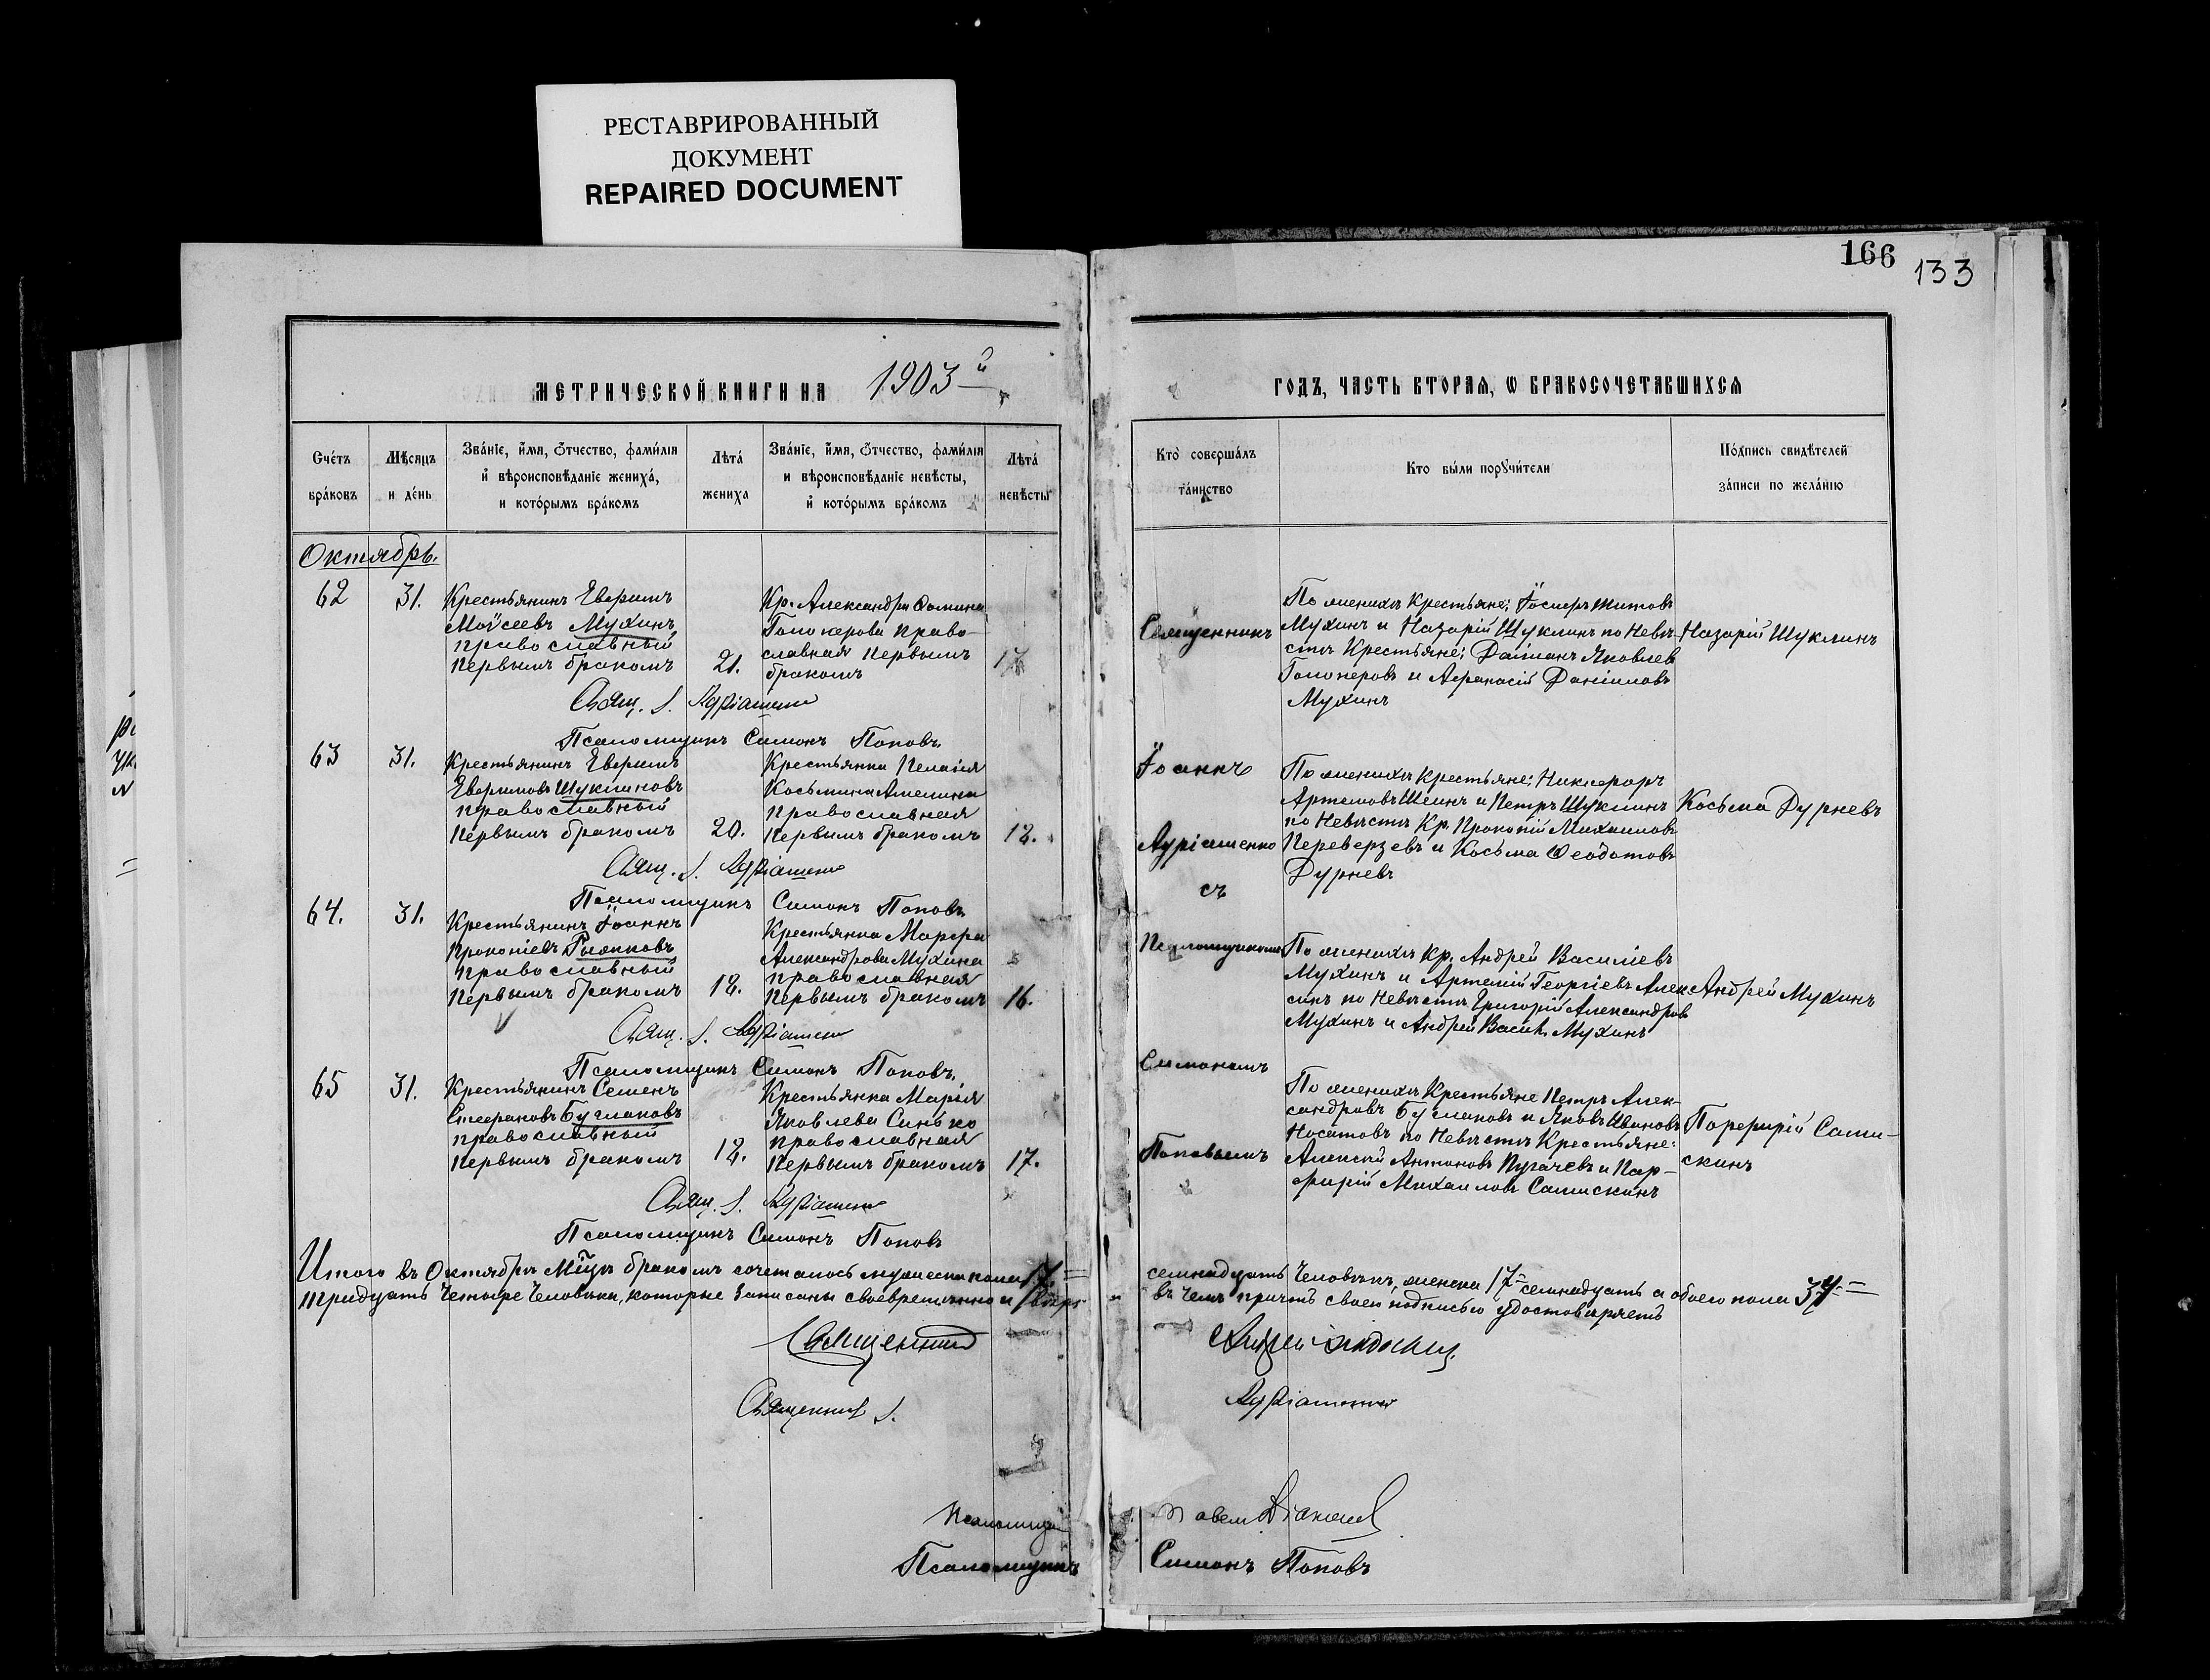 РЕСТАВРИРОВАННЫЙ
ДОКУМЕНТ
REPAIRED DOCUMENT
166
133
МЕТРИЧЕСКОЙ КНИГИ НА 1903-й
ГОДЪ, ЧАСТЬ ВТОРАЯ, Ѡ БРАКОСОЧЕТАВШИХСЯ
Счетъ браковъ
Мѣсяцъ и день
Званіе, имя, отчество, фамилія и вѣроисповѣданіе жениха, и которымъ бракомъ
Лѣта жениха
Званіе, имя, отчество, фамилія и вѣроисповѣданіе невѣсты, и которымъ бракомъ
Лѣта невѣсты
Кто совершалъ таинство
Кто были поручители
Подпись свидѣтелей записи по желанію
Октябрь.
62 31.
Крестьянинъ Евфимъ
Моѵсеевъ Мухинъ
православный
первымъ бракомъ 21.
Кр. Александра Фомина
Голоперова право-
славная первымъ
бракомъ
Свящ. І.
Псаломщикъ Симонъ Поповъ.
63 31.
Крестьянинъ Евфимъ
Евфимовъ Щуклиновъ
православный
первымъ бракомъ 20.
Крестьянка Пелагія
Косьмина Алехина
православная
первымъ бракомъ 18.
Свящ. І.
Псаломщикъ Симонъ Поповъ.
64. 31.
Крестьянинъ Іоаннъ
Прокопіевъ
православный
первымъ бракомъ 18.
Крестьянка Марфа
Александрова Мухина
православная
первымъ бракомъ 16.
Свящ. І.
Псаломщикъ Симонъ Поповъ.
65 31.
Крестьянинъ Семенъ
Стефановъ Буглаковъ
православный
первымъ бракомъ 18.
Крестьянка Марія
Яковлева Синько
православная
первымъ бракомъ 17.
Свящ. І.
Псаломщикъ Симонъ Поповъ
Итого въ Октябрѣ Мцѣ бракомъ сочеталось мужеска пола 17.=
тридцать четыре человѣка, которые записаны своевременно и вѣрно
Священник
Священник І.
Псаломщик
Псаломщикъ
Священникъ
Іоаннъ
съ
Псаломщикомъ
Симономъ
Поповымъ
По женихѣ крестьяне: Іосифъ Титовъ
Мухинъ и Назарій Щуклинъ по невѣ-
стѣ крестьяне: Даміанъ Яковлев
Голоперовъ и Афанасій Даніиловъ
Мухинъ
Назарій Щуклинъ
По женихѣ крестьяне: Никифоръ
Артемовъ Шеинъ и Петръ Щуклинъ
по невѣстѣ Кр. Прокопій Михаиловъ
Переверзевъ и Косьма Феодотовъ
Дурневъ
Косьма Дурневъ
По женихѣ Кр. Андрей Василіевъ
Мухинъ и Артемій Георгіевъ Алек-
синъ по невѣстѣ Григорій Александров
Мухинъ и Андрей Васил. Мухинъ
Андрей Мухинъ
По женихѣ Крестьяне Петръ Алек-
сандровъ Буглаковъ и Яковъ Ивановъ
Носатовъ по невѣстѣ Крестьяне:
Алексій Антоновъ Пугачевъ и Пор-
фирій Михаиловъ Сашискинъ
Порфирій Саши-
скинъ
семнадцать человѣкъ, женска 17= семнадцать а обоего пола 34=
въ чемъ причтъ своею подписью удостовѣряетъ
Павелъ
Симонъ Поповъ